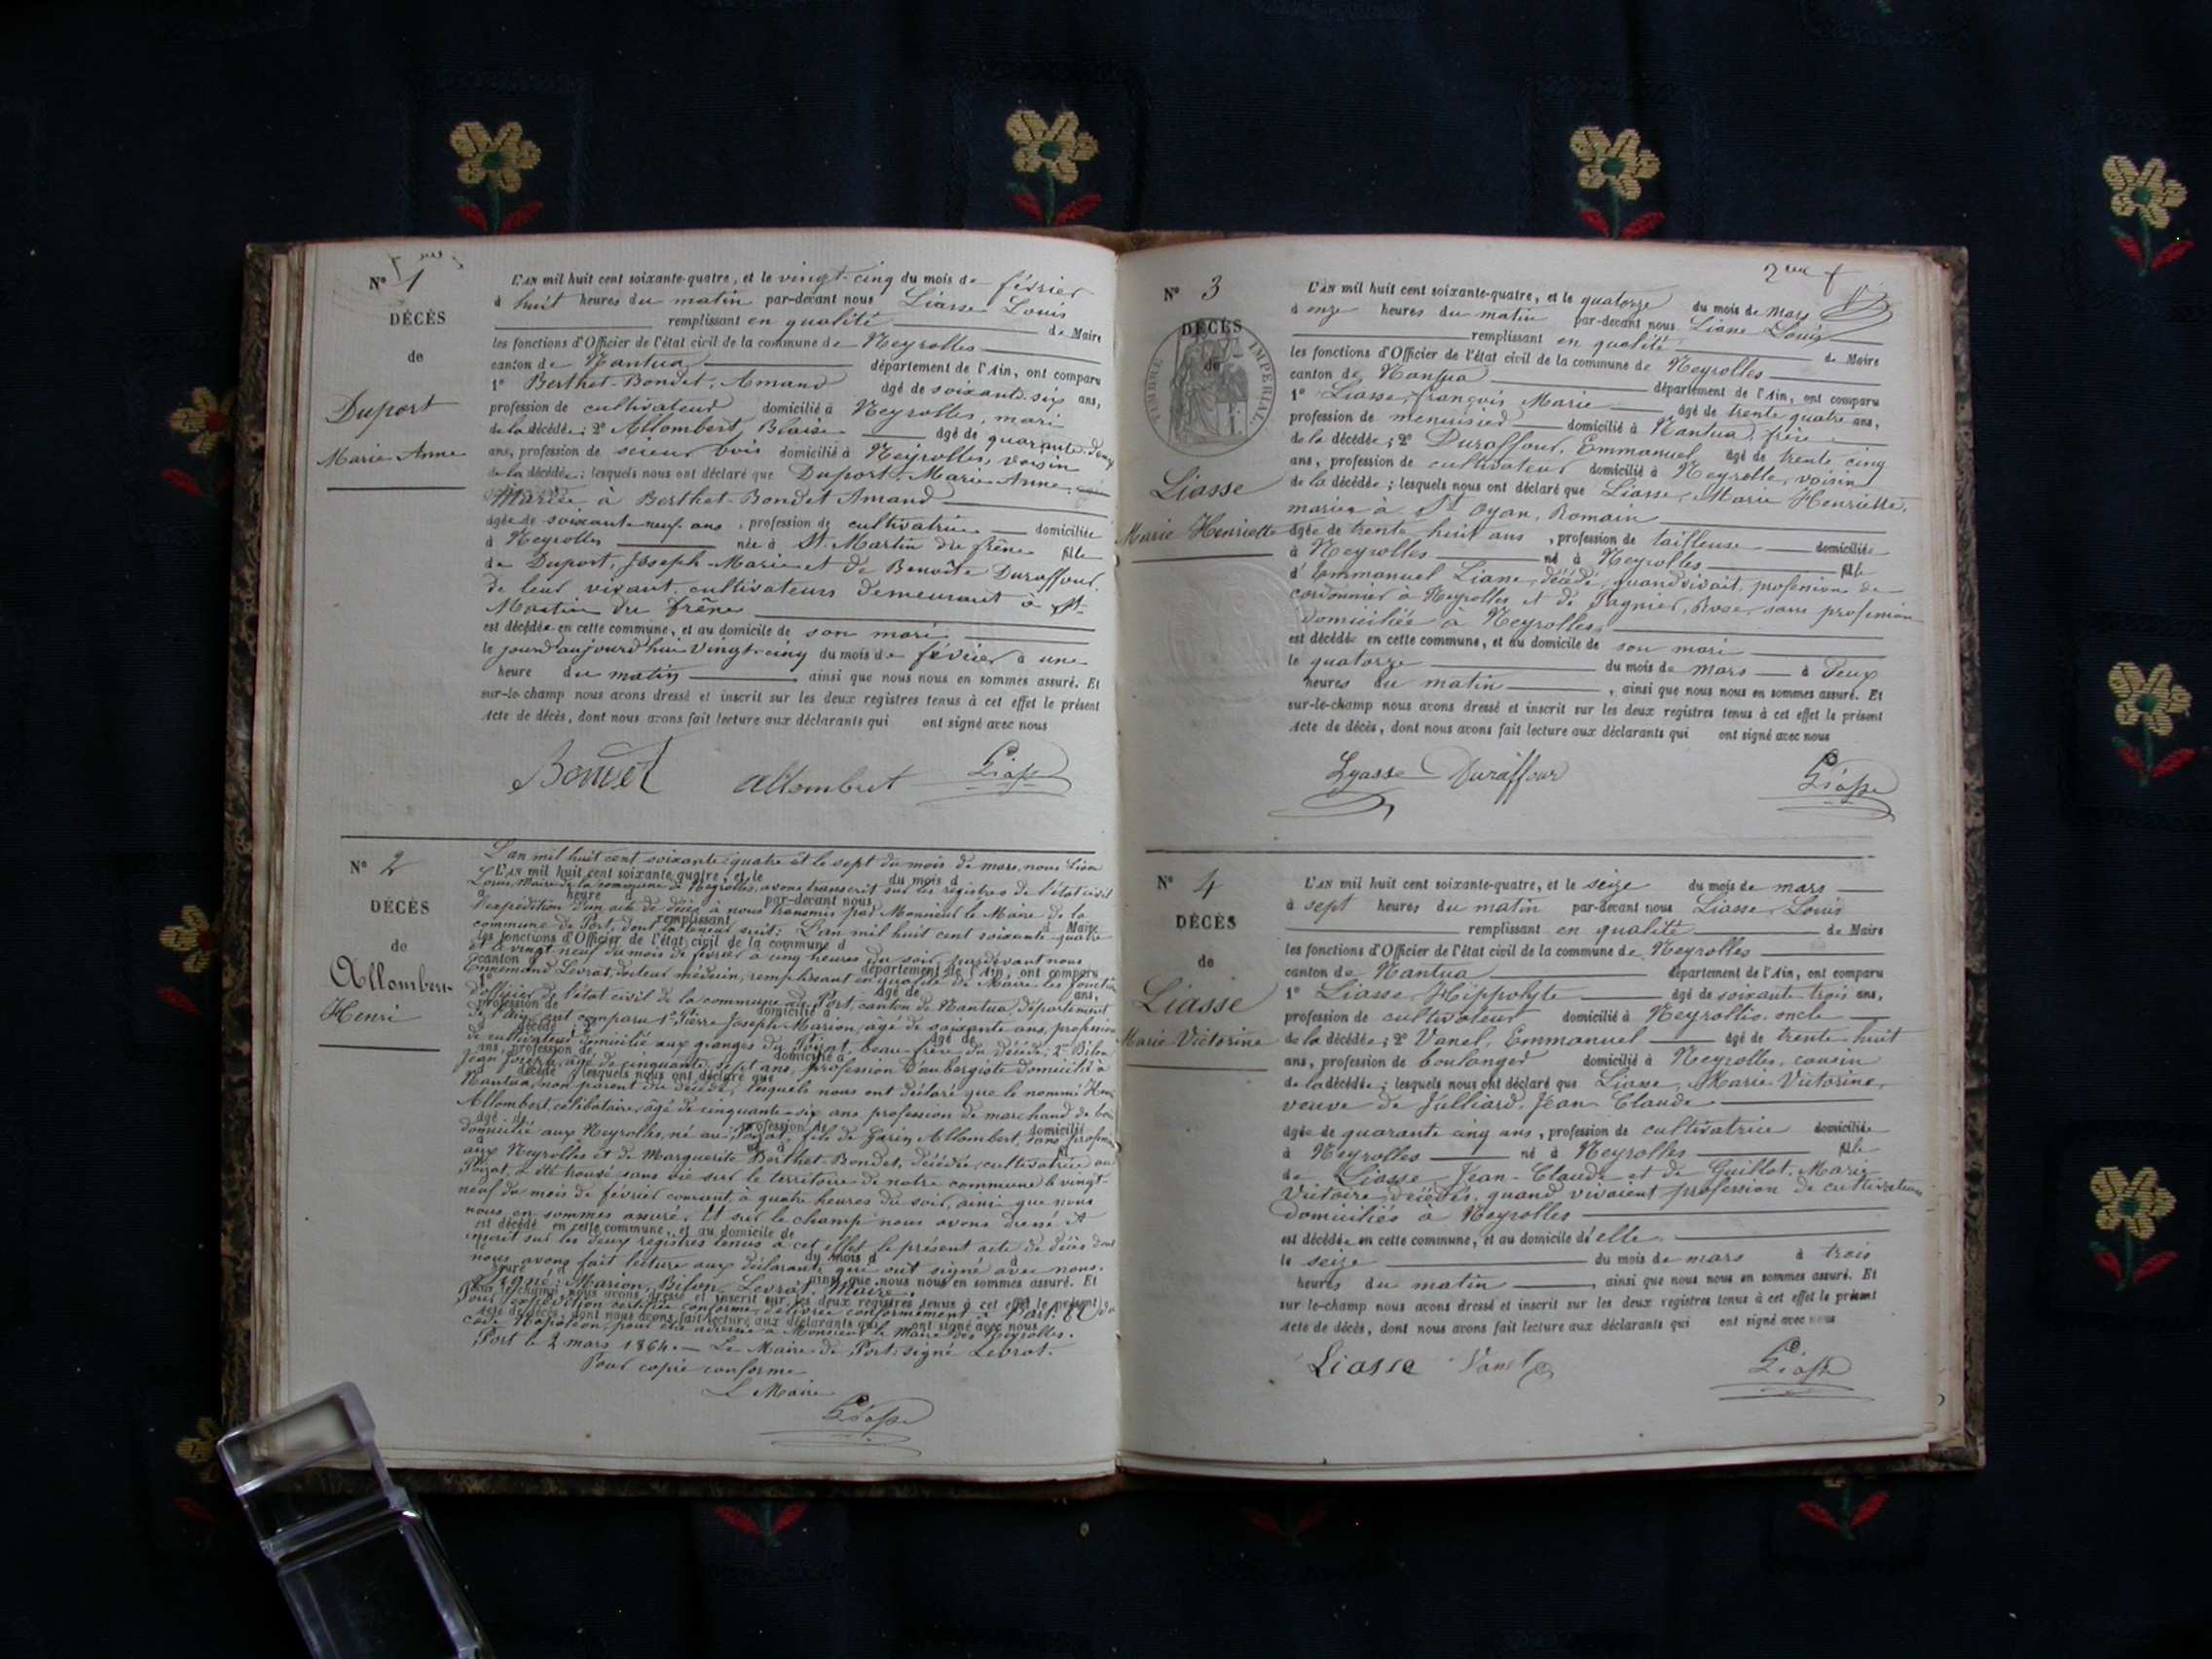 N° 1
DÉCÈS
de
Duport
Marie Anne
L'AN mil huit cent soixante-quatre, et le vingt-cinq du mois de février
à huit heures du matin par-devant nous Liasse Louis
remplissant en qualité de Maire
les fonctions d'Officier de l'état civil de la commune de Neyrolles
canton de Nantua département de l'Ain, ont comparu
1° Berthet-Bondet, Amand âgé de soixante-six ans,
profession de cultivateur domicilié à Neyrolles, mari
de la décédée; 2° Allombert, Blaise âgé de quarante-deux
ans, profession de scieur bois domicilié à Neyrolles, voisin
de la décédée; lesquels nous ont déclaré que Duport, Marie-Anne,
Mariée à Berthet-Bondet Amand
âgée de soixante neuf ans, profession de cultivatrice domiciliée
à Neyrolles née à St. Martin du frêne fille
de Duport, Joseph-Marie et de Benoîte Duraffour,
de leur vivant cultivateurs demeurant à St.
Martin du frêne
est décédée en cette commune, et au domicile de son mari
le jourd'aujourd'hui vingt-cinq du mois de février à une
heure du matin ainsi que nous nous en sommes assuré. Et
sur-le-champ nous avons dressé et inscrit sur les deux registres tenus à cet effet le présent
Acte de décès, dont nous avons fait lecture aux déclarants qui ont signé avec nous
Bondet Allombert Liasse
N° 2
DÉCÈS
de
Allombert-
Henri
L'an mil huit cent soixante-quatre et le sept du mois de mars, nous Liasse
L'AN mil huit cent soixante quatre, et le du mois d
Louis, Maire de la commune de Neyrolles, avons transcrit sur les registres de l'état civil
à heure d par-devant nous
l'expédition d'un acte de décès à nous transmis par Monsieur le Maire de la
remplissant d Maire
commune de Port, dont la teneur suit: L'an mil huit cent soixante quatre
les fonctions d'Officier de l'état civil de la commune d
et le vingt-neuf du mois de février à cinq heures du soir, pardevant nous
canton d département de l'Ain, ont comparu
Ennemond Levrat, docteur médecin, remplissant en qualité de Maire les fonctions
1° âgé de ans,
d'officier de l'état civil de la commune de Port, canton de Nantua, département
profession de domicilié à
de l'Ain, ont comparu 1° Pierre Joseph Marion, âgé de soixante ans, profession
d décédé; 2° âgé de
de cultivateur domicilié aux granges du Poizat, beau-frère du décédé; 2° Bilon
ans, profession de domicilié à
Jean Joseph, âgé de cinquante-sept ans, profession d'aubergiste domicilié à
d décédé lesquels nous ont déclaré que
Nantua, non parent du décédé, lesquels nous ont déclaré que le nommé Henri
Allombert, célibataire, âgé de cinquante-six ans profession de marchand de bois
âgé de profession de domicilié
domicilié aux Neyrolles, né au Poizat, fils de Garin Allombert, sans profession
à né à fil
aux Neyrolles et de Marguerite Berthet-Bondet, décédée, cultivatrice au
Poizat, a été trouvé sans vie sur le territoire de notre commune le vingt-
neuf du mois de février courant à quatre heures du soir, ainsi que nous
nous en sommes assuré. Et sur le champ nous avons dressé et
est décédé en cette commune, et au domicile de
inscrit sur les deux registres tenus à cet effet le présent acte de décès dont
le du mois d à
nous avons fait lecture aux déclarants qui ont signé avec nous.
heure d ainsi que nous nous en sommes assuré. Et
Signé: Marion, Bilon, Levrat, Maire.
sur-le-champ nous avons dressé et inscrit sur les deux registres tenus à cet effet le présent
Pour expédition certifiée conforme, délivrée conformément à l'art. 82 du
Acte de décès, dont nous avons fait lecture aux déclarants qui ont signé avec nous
code Napoléon pour être adressée à Monsieur le Maire des Neyrolles.
Port le 2 mars 1864. — Le Maire de Port, signé Levrat.
Pour copie conforme
Le Maire
Liasse
N° 3
DÉCÈS
de
TIMBRE IMPÉRIAL
Liasse
Marie Henriette
L'AN mil huit cent soixante-quatre, et le quatorze du mois de mars
à onze heures du matin par-devant nous Liasse Louis
remplissant en qualité de Maire
les fonctions d'Officier de l'état civil de la commune de Neyrolles
canton de Nantua département de l'Ain, ont comparu
1° Liasse, françois Marie âgé de trente quatre ans,
profession de menuisier domicilié à Nantua, frère
de la décédée; 2° Duraffour, Emmanuel âgé de trente cinq
ans, profession de cultivateur domicilié à Neyrolle, voisin
de la décédée; lesquels nous ont déclaré que Liasse, Marie Henriette,
mariée à St Oyan, Romain
âgée de trente huit ans, profession de tailleuse domiciliée
à Neyrolles né à Neyrolles fille
d'Emmanuel Liasse, décédé, quand vivait, profession de
cordonnier à Neyrolles et de Pagnier, Rose, sans profession
domiciliée à Neyrolles
est décédée en cette commune, et au domicile de son mari
le quatorze du mois de mars à deux
heures du matin, ainsi que nous nous en sommes assuré. Et
sur-le-champ nous avons dressé et inscrit sur les deux registres tenus à cet effet le présent
Acte de décès, dont nous avons fait lecture aux déclarants qui ont signé avec nous
Lyasse Duraffour Liasse
N° 4
DÉCÈS
de
Liasse
Marie Victorine
L'AN mil huit cent soixante-quatre, et le seize du mois de mars
à sept heures du matin par-devant nous Liasse, Louis
remplissant en qualité de Maire
les fonctions d'Officier de l'état civil de la commune de Neyrolles
canton de Nantua département de l'Ain, ont comparu
1° Liasse, Hippolyte âgé de soixante-trois ans,
profession de cultivateur domicilié à Neyrolles, oncle
de la décédée; 2° Vanel, Emmanuel âgé de trente-huit
ans, profession de boulanger domicilié à Neyrolles, cousin
de la décédée; lesquels nous ont déclaré que Liasse, Marie-Victorine,
veuve de Julliard, Jean-Claude
âgée de quarante cinq ans, profession de cultivatrice domiciliée
à Neyrolles né à Neyrolles fille
de Liasse Jean-Claude et de Guillot, Marie
Victoire, décédés, quand vivaient profession de cultivateurs
domiciliés à Neyrolles
est décédée en cette commune, et au domicile d'elle
le seize du mois de mars à trois
heures du matin, ainsi que nous nous en sommes assuré. Et
sur-le-champ nous avons dressé et inscrit sur les deux registres tenus à cet effet le présent
Acte de décès, dont nous avons fait lecture aux déclarants qui ont signé avec nous
Liasse Vanel Liasse